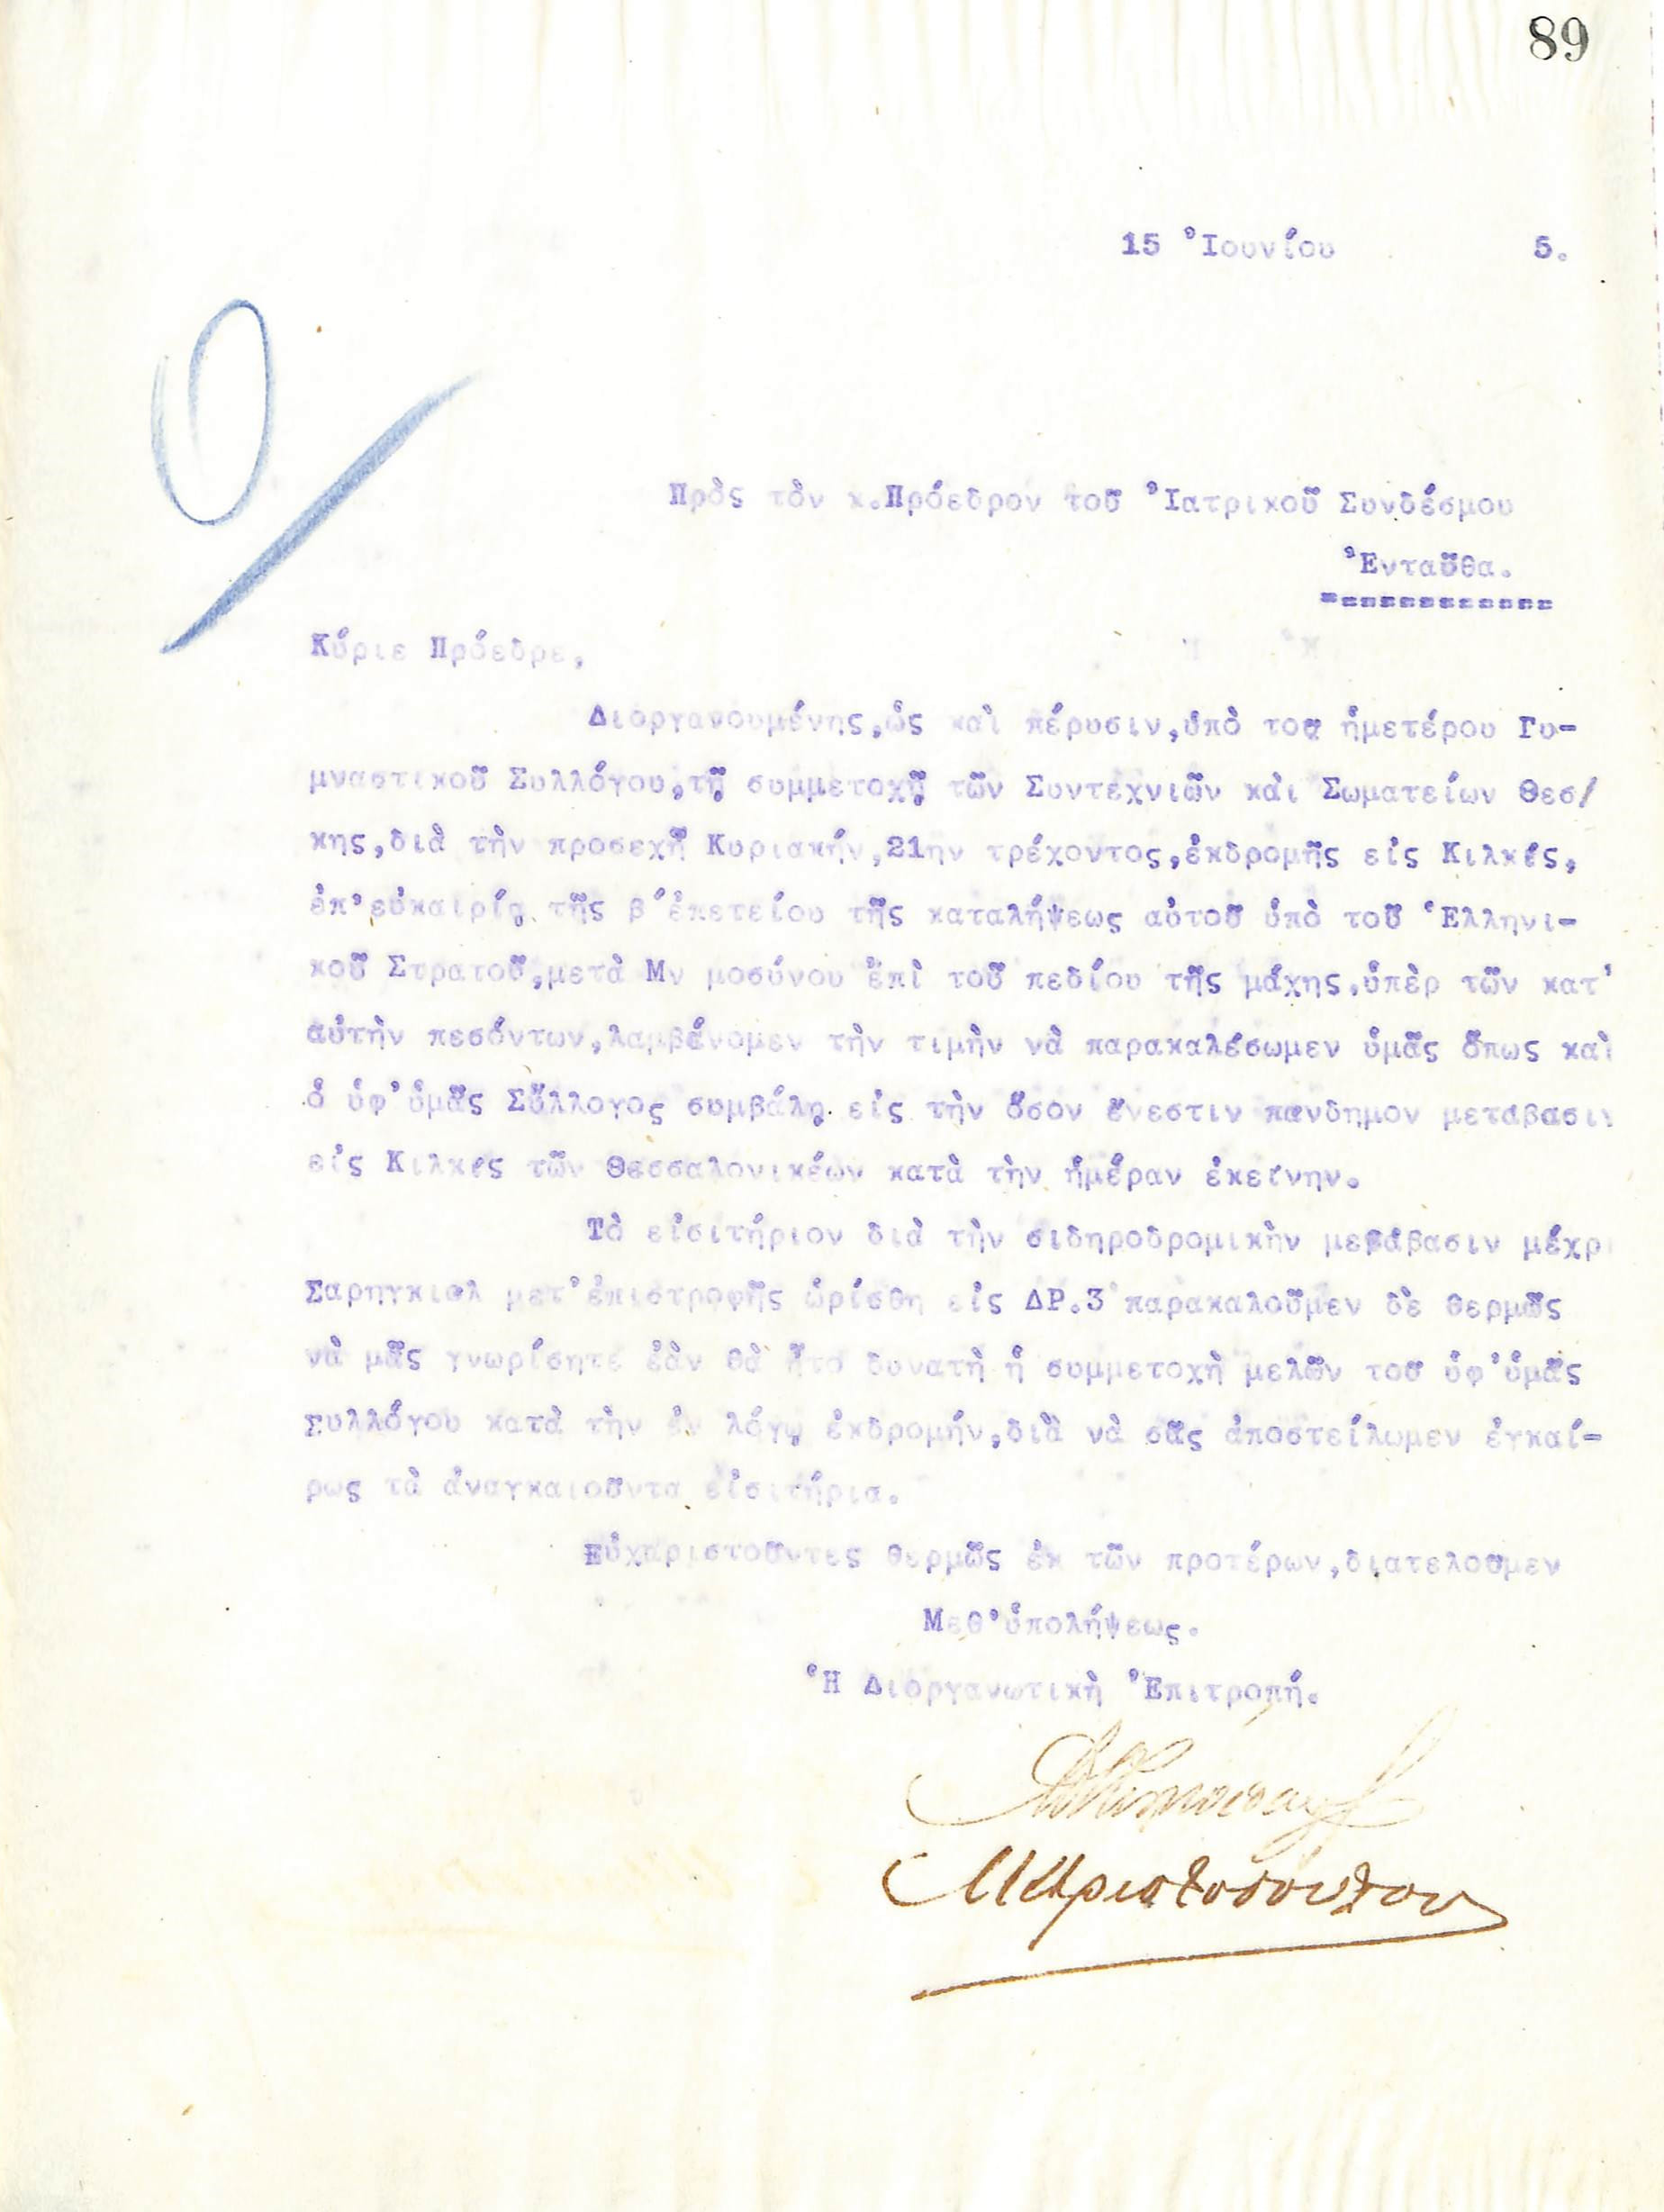 89
15 Ἰουνίου 5.
Πρὸς τὸν κ.Πρόεδρον τοῦ Ἰατρικοῦ Συνδέσμου
Ἐνταῦθα.
=============
Κύριε Πρόεδρε,
Διοργανουμένης,ὡς καὶ πέρυσιν,ὑπὸ του ἡμετέρου Γυ-
μναστικοῦ Συλλόγου,τῇ συμμετοχῇ τῶν Συντεχνιῶν καὶ Σωματείων Θεσ/
κης,διὰ τὴν προσεχῆ Κυριακήν,21ην τρέχοντος,ἐκδρομῆς εἰς Κιλκίς,
ἐπ'εὐκαιρίᾳ τῆς β΄ἐπετείου τῆς καταλήψεως αὐτοῦ ὑπὸ τοῦ Ἑλληνι-
κοῦ Στρατοῦ,μετὰ Μν μοσύνου ἐπὶ τοῦ πεδίου τῆς μάχης,ὑπὲρ τῶν κατ'
αὐτὴν πεσόντων,λαμβάνομεν τὴν τιμὴν νὰ παρακαλέσωμεν ὑμᾶς ὅπως καὶ
ὁ ὑφ'ὑμᾶς Σύλλογος συμβάλῃ εἰς τὴν ὅσον ἔνεστιν πάνδημον μετάβασιν
εἰς Κιλκίς τῶν Θεσσαλονικέων κατὰ τὴν ἡμέραν ἐκείνην.
Τὸ εἰσιτήριον διὰ τὴν σιδηροδρομικὴν μετάβασιν μέχρι
Σαρηγκιολ μετ'ἐπιστροφῆς ὡρίσθη εἰς ΔΡ.3 παρακαλοῦμεν δὲ θερμῶς
νὰ μᾶς γνωρίσητε ἐὰν θὰ ἦτο δυνατὴ ἡ συμμετοχὴ μελῶν τοῦ ὑφ'ὑμᾶς
Συλλόγου κατὰ τὴν ἐν λόγῳ ἐκδρομήν,διὰ νὰ σᾶς ἀποστείλωμεν ἐγκαί-
ρως τὰ ἀναγκαιοῦντα εἰσιτήρια.
Εὐχαριστοῦντες θερμῶς ἐκ τῶν προτέρων,διατελοῦμεν
Μεθ'ὑπολήψεως.
Ἡ Διοργανωτικὴ Ἐπιτροπή.